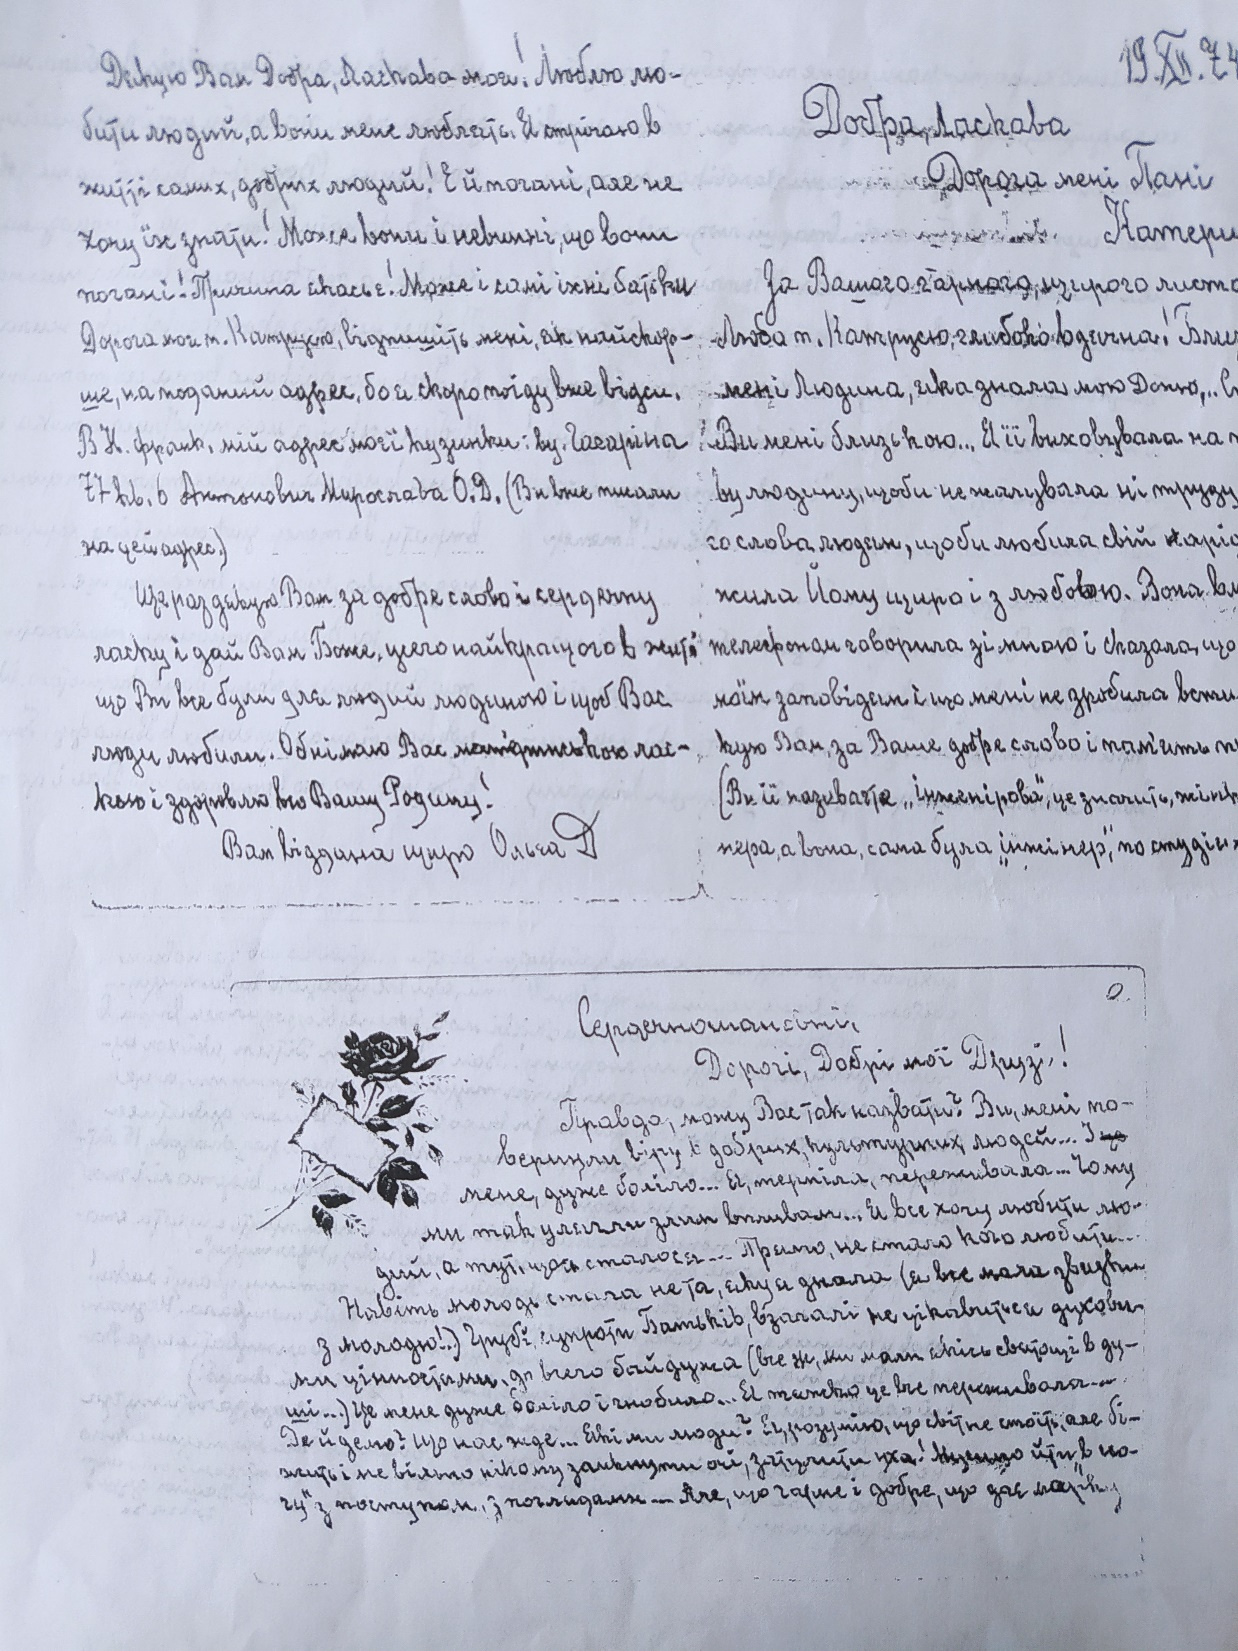 Дякую Вам Добра, Ласкава моя! Люблю лю-
бити людий, а вони мене люблять. Я стрічаю в
житті самих, добрих людий! Є й погані, але не
хочу їх знати! Може вони і невинні, що вони
погані! Причина якась є! Може і самі їхні батьки
Дорога моя п. Катрусю, відпишіть мені, як найскор-
ше, на поданий адрес, бо я скоро поїду вже відси.
В Ів. Франк. мій адрес моєї кузинки: ву. Гагаріна
77 кв. 6 Антонович Мирослава О.Д. (Ви вже писали
на цей адрес.)
Ще раз дякую Вам за добре слово і сердечну
ласку і дай Вам Боже, всего найкращого в житі
що Ви все були для людий людиною і щоб Вас
люди любили. Обнімаю Вас материнською лас-
кою і здоровлю всю Вашу Родину!
Вам віддана щиро Ольга Д
19.XII.74
Добра, Ласкава
Дорога мені Пані
Катери
За Вашого гарного, щирого листа
Люба п. Катрусю, глибоко вдячна!
мені Людина, яка знала, мою Доню,..
Ви мені близькою.. Я її виховувала на
ву людину, щоби не жалувала ні труду
го слова людям, щоби любила свій нарід
жила Йому щиро і з любовю. Вона
телефоном говорила зі мною і сказала, що
моїм заповідям і що мені не зробила
кую Вам, за Ваше добре слово і память
(Ви її називаєте „інженірова", це значить, жінк
нера, а вона, сама була „інжінер", по студія
2.
Сердечношановні,
Дорогі, Добрі мої Друзі!
Правда, можу Вас так назвати? Ви, мені по-
вернули віру в добрих, культурних, людей... І що
мене, дуже боліло... Я, терпіла, переживала... Чому
ми так улягли злим впливам... Я все хочу любити лю-
дий, а тут, щось сталося... Прямо, не стало кого любити...
Навіть молодь стала не та, яку я знала (я все мала звязки
з молодю!..) Грубі, супроти Батьків, взагалі не цікавиться духови-
ми цінностями, до всего байдужа (все ж, ми мали якісь святощі в ду-
ші...) Це мене дуже боліло і гнобило... Я тяжко це все переживала...
Де йдемо? Що нас жде... Які ми люди? Я, розумію, що світ не стоїть, але бі-
жить і не вільно нікому замкнути очі, затулити уха! Мусимо йти в но-
гу" з поступом, з поглядами... Але, що гарне і добре, що дає